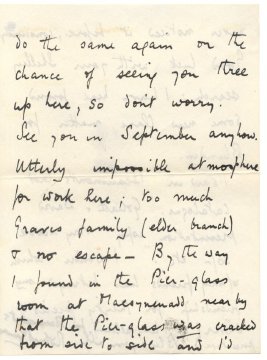 do the same again on the
chance of seeing you three
up here, so don't worry.
See you in September anyhow.
Utterly impossible atmosphere
for work here; too much
Graves family (elder branch)
& no escape — By the way
I found in the Pier-glass
room at Maesyneuadd nearby
that the Pier-glass was cracked
from side to side and I'd